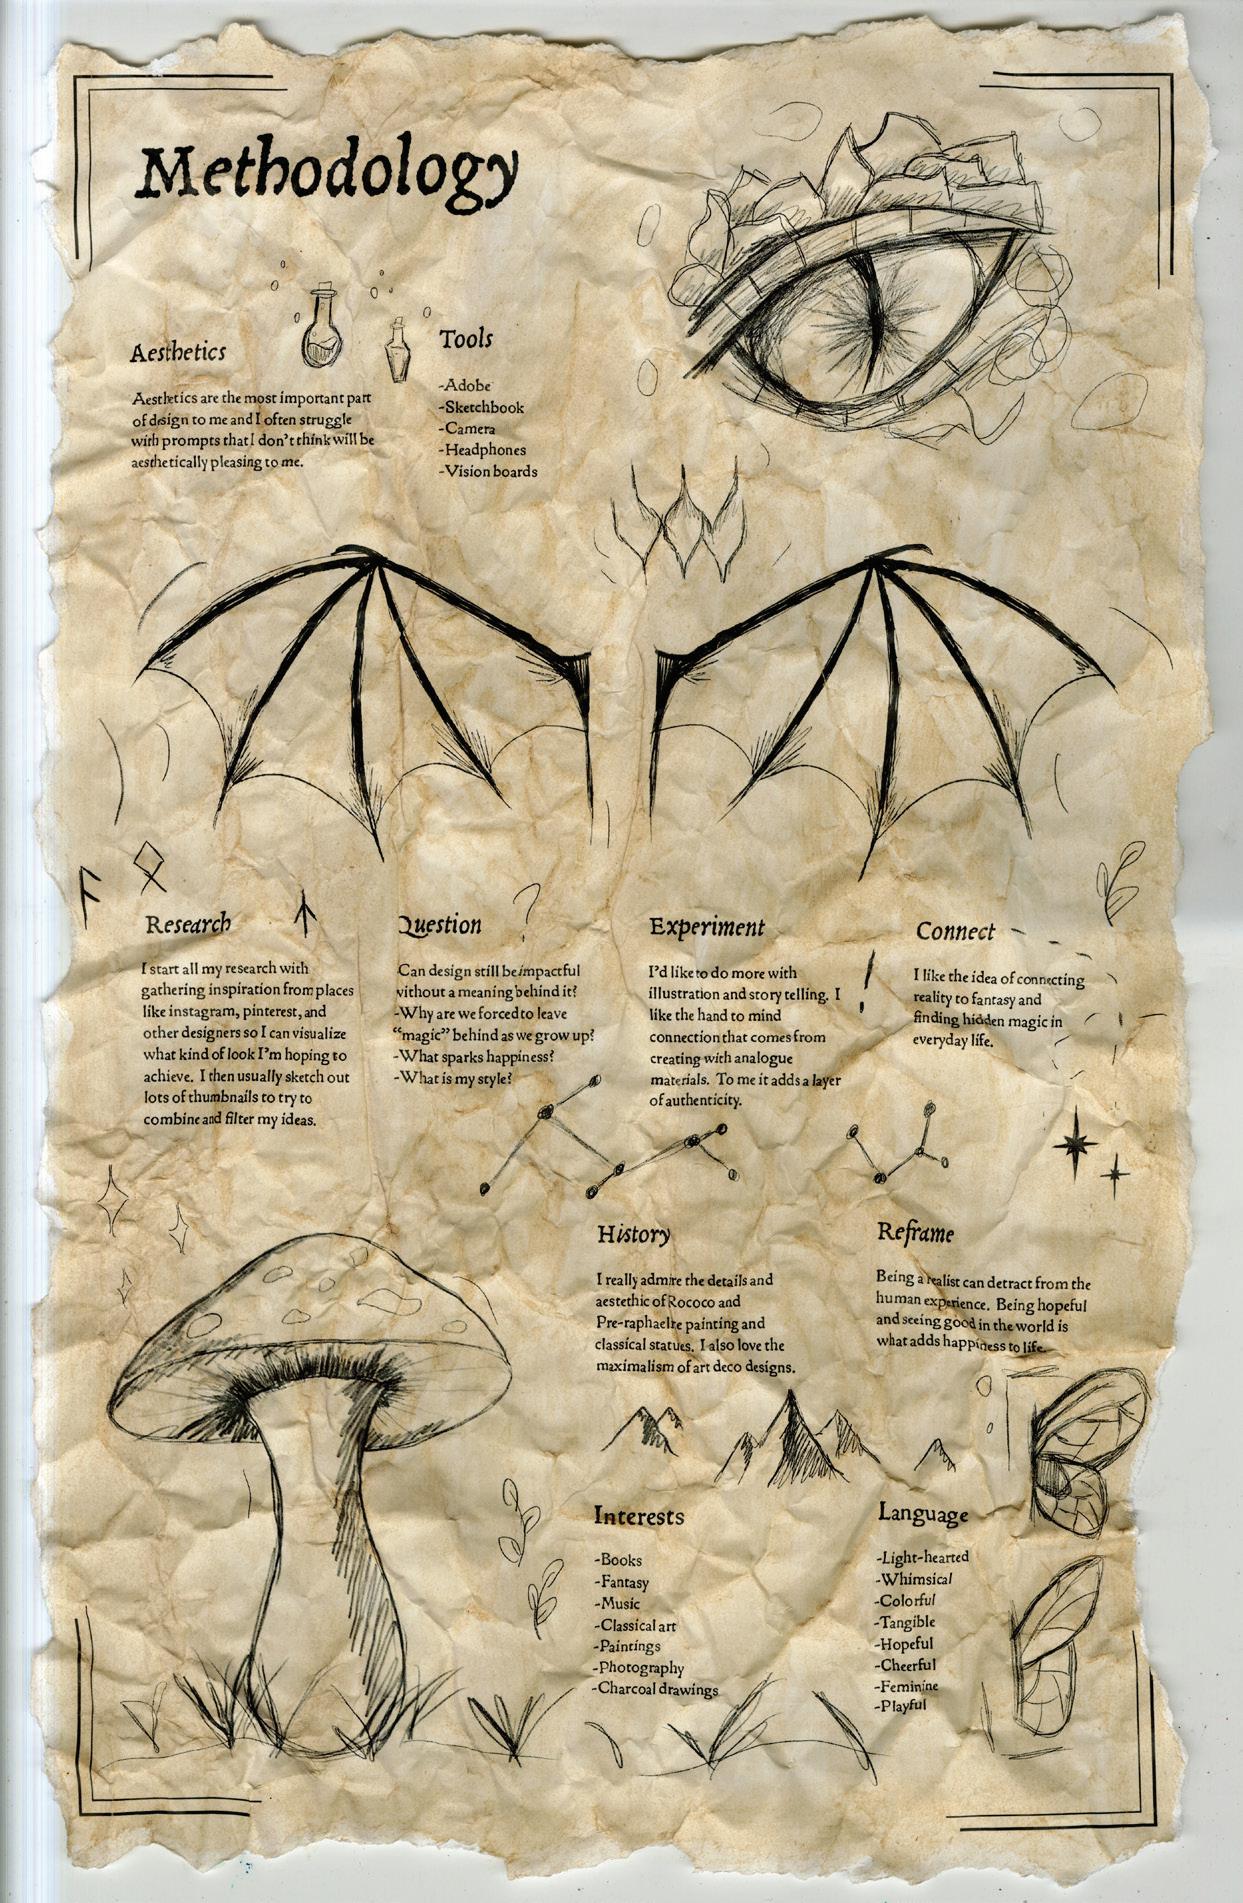 Methodology
Aesthetics
Aesthetics are the most important part
of design to me and I often struggle
with prompts that I don't think will be
aesthetically pleasing to me.
Tools
-Adobe
-Sketchbook
-Camera
-Headphones
-Vision boards
Research
I start all my research with
gathering inspiration from places
like instagram, pinterest, and
other designers so I can visualize
what kind of look I'm hoping to
achieve. I then usually sketch out
lots of thumbnails to try to
combine and filter my ideas.
Question
-Can design still be impactful
without a meaning behind it?
-Why are we forced to leave
“magic” behind as we grow up?
-What sparks happiness?
-What is my style?
?
Experiment
I'd like to do more with
illustration and story telling. I
like the hand to mind
connection that comes from
creating with analogue
materials. To me it adds a layer
of authenticity.
!
Connect
I like the idea of connecting
reality to fantasy and
finding hidden magic in
everyday life.
History
I really admire the details and
aestethic of Rococo and
Pre-raphaelte painting and
classical statues. I also love the
maximalism of art deco designs.
Reframe
Being a realist can detract from the
human experience. Being hopeful
and seeing good in the world is
what adds happiness to life.
Interests
-Books
-Fantasy
-Music
-Classical art
-Paintings
-Photography
-Charcoal drawings
Language
-Light-hearted
-Whimsical
-Colorful
-Tangible
-Hopeful
-Cheerful
-Feminine
-Playful